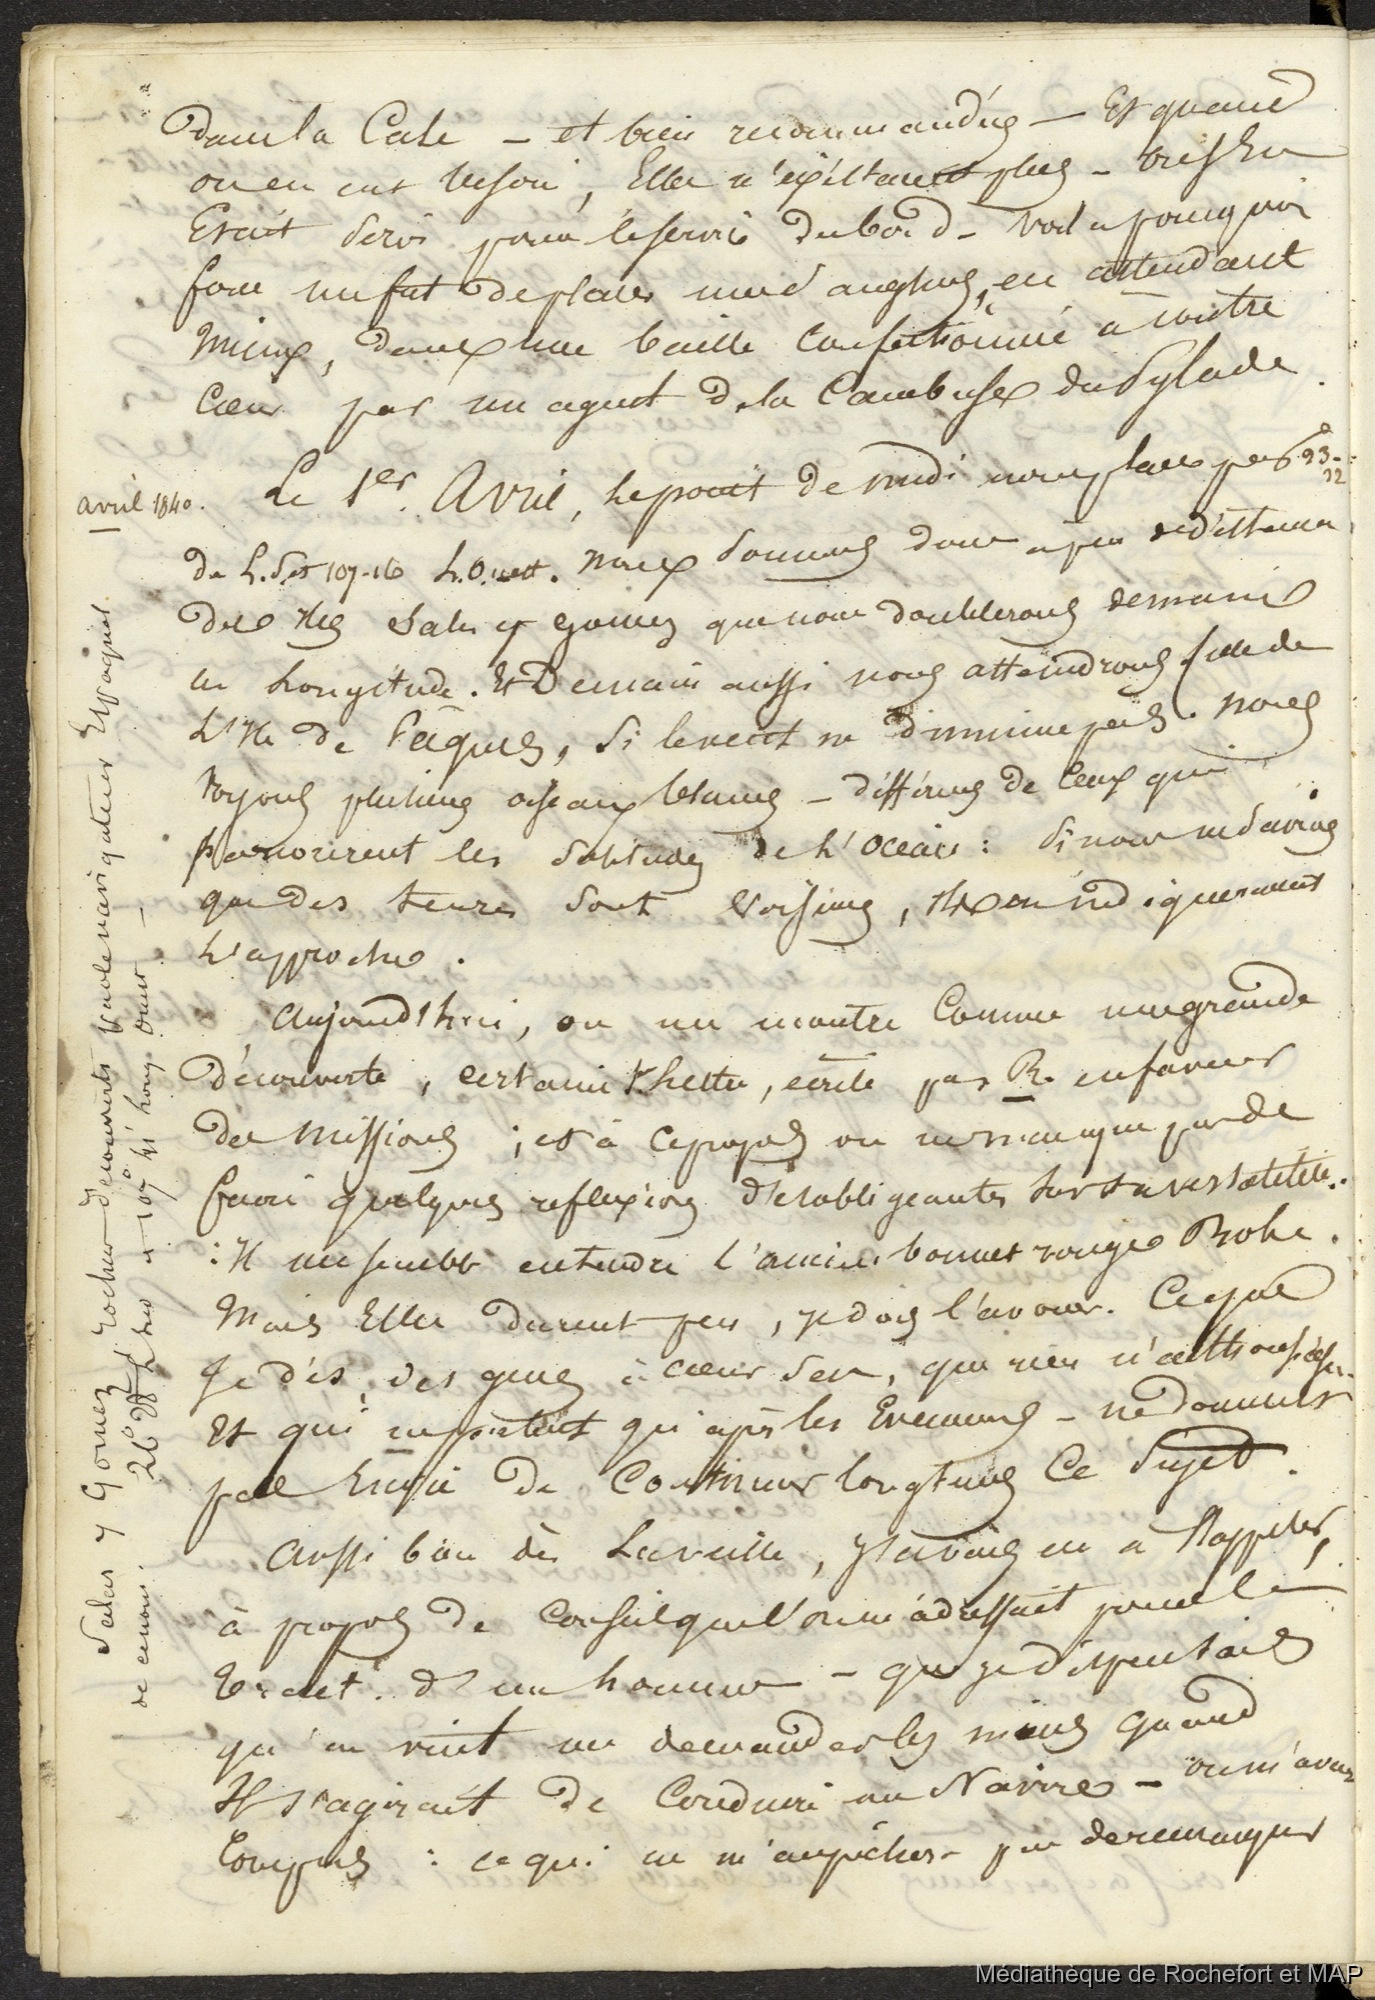 dans la Cale – et bien recommandées – Et quand
on en eut besoin, Elles n'existaient plus –
Etait servi pour le service du bord – voila pourquoi
force me fut de placer mes d'anglures, en attendant
Mieux, dans une baille confectionnée à contre
Cœur par un agent de la Cambuse du Pylade.
avril 1840.
Le 1er. Avril, le point de midi nous place par 23-22
de L. S. et 107-16 L. Ouest. Nous sommes donc à peu de distance
des Iles Sala y Gomez que nous doublerons demain
en Longitude. Et Demain aussi nous atteindrons celle de
L'Ile de Pâques, Si le vent ne diminue pas. Nous
voyons plusieurs oiseaux blancs – différens de Ceux qui
parcourent les solitudes de L'Océan : Si nous ne savions
que des terres sont voisines, ils en indiqueraient
L'approche.
Aujourd'hui, on me montre Comme une grande
découverte, certaine lettre, écrite par R. en faveur
des Missions ; et à ce propos on ne manque pas de
faire quelques reflexions désobligeantes sur sa versatilité..
: Il me semble entendre l'ancien bonnet rouge Robe.
Mais Elles durent peu, je dois l'avouer. Ce que
Je dis, des gens à cœur sec, que rien n'a
Et qui ne qu'après les Evenemens – ne donnent
pas Envie de Continuer longtems Ce sujet.
Aussi bien dès La veille, j'avais eu à Rappeler,
à propos de Conseil que l'on m'adressait pour le
trait. d'un homme – que je dispensais
qu'on vint me demander les miens quand
Il s'agirait de Conduire un Navire – on m'avait
Compris : ce qui ne m'empêcher pas de remarquer
Salas y Gomez, rocher découverts par le navigateur Espagnol
de ce nom. 26° 28' L. Sud et 107° 41' Long. Ouest –
Médiathèque de Rochefort et MAP